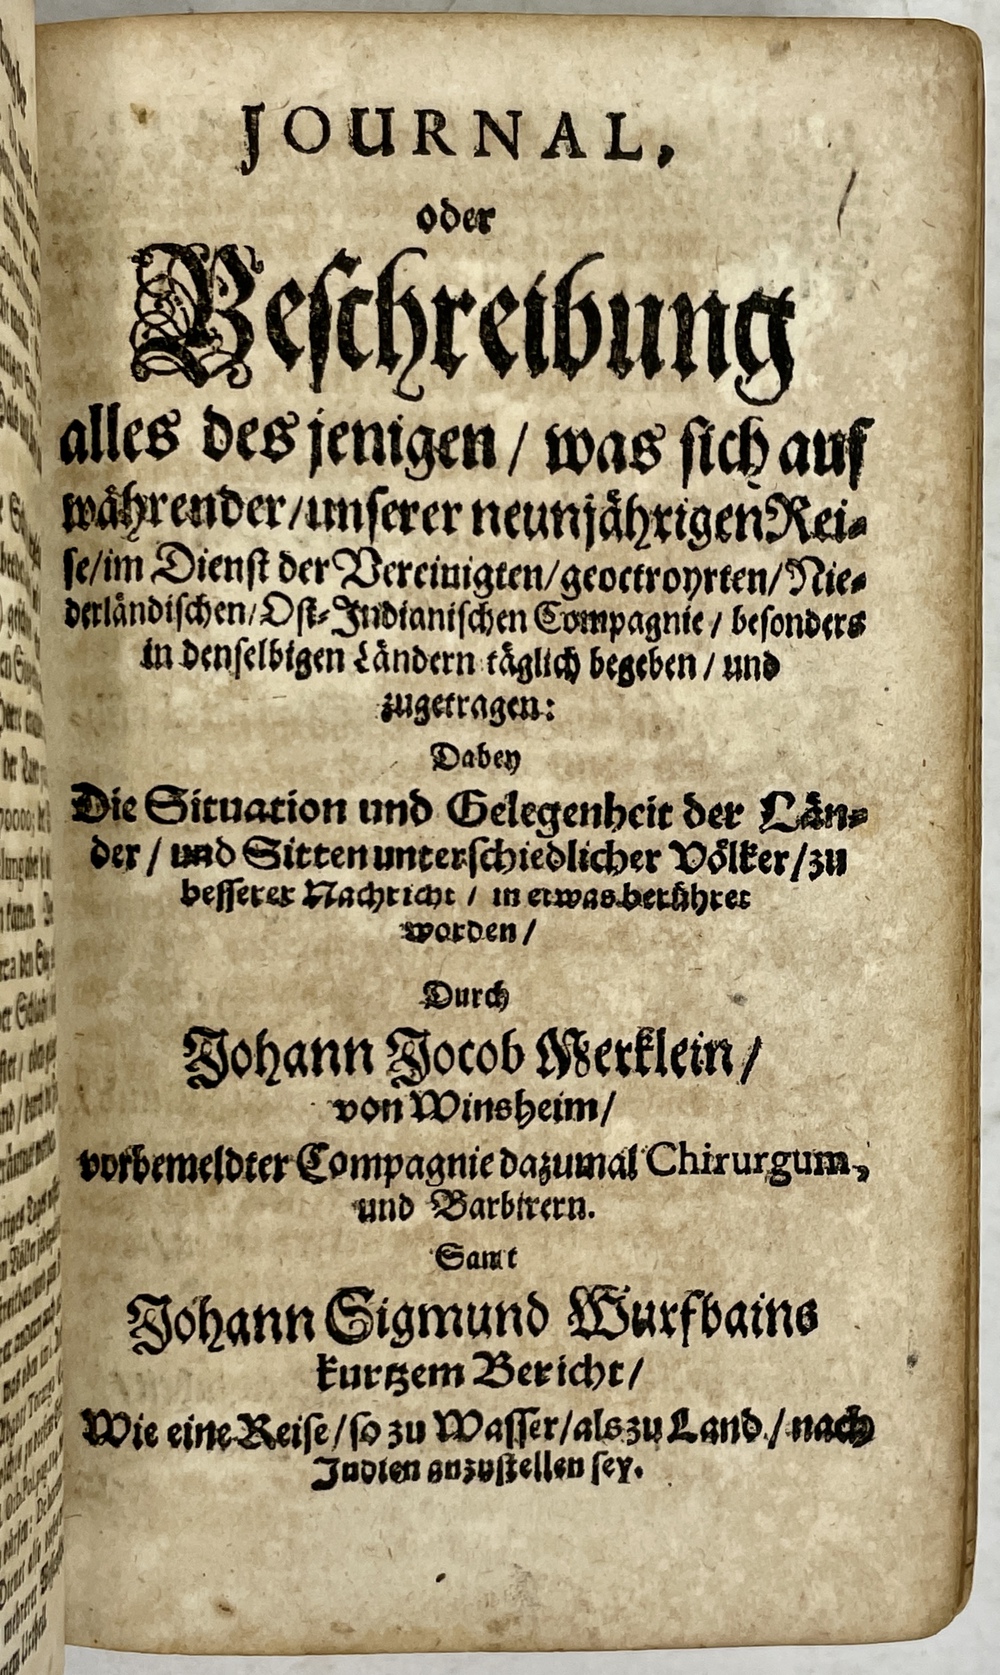 JOURNAL,
oder
Beschreibung
alles des jenigen / was sich auf
währender / unserer neunjährigen Rei-
se / im Dienst der Vereinigten / geoctroyrten / Nie-
derländischen / Ost-Indianischen Compagnie / besonders
in denselbigen Ländern täglich begeben / und
zugetragen:
Dabey
Die Situation und Gelegenheit der Län-
der / und Sitten unterschiedlicher Völker / zu
besserer Nachricht / in etwas berühret
worden /
Durch
Johann Jocob Merklein /
von Winsheim /
vorbemeldter Compagnie dazumal Chirurgum,
und Barbirern.
Samt
Johann Sigmund Wurfbains
kurtzem Bericht /
Wie eine Reise / so zu Wasser / als zu Land / nach
Indien anzustellen sey.